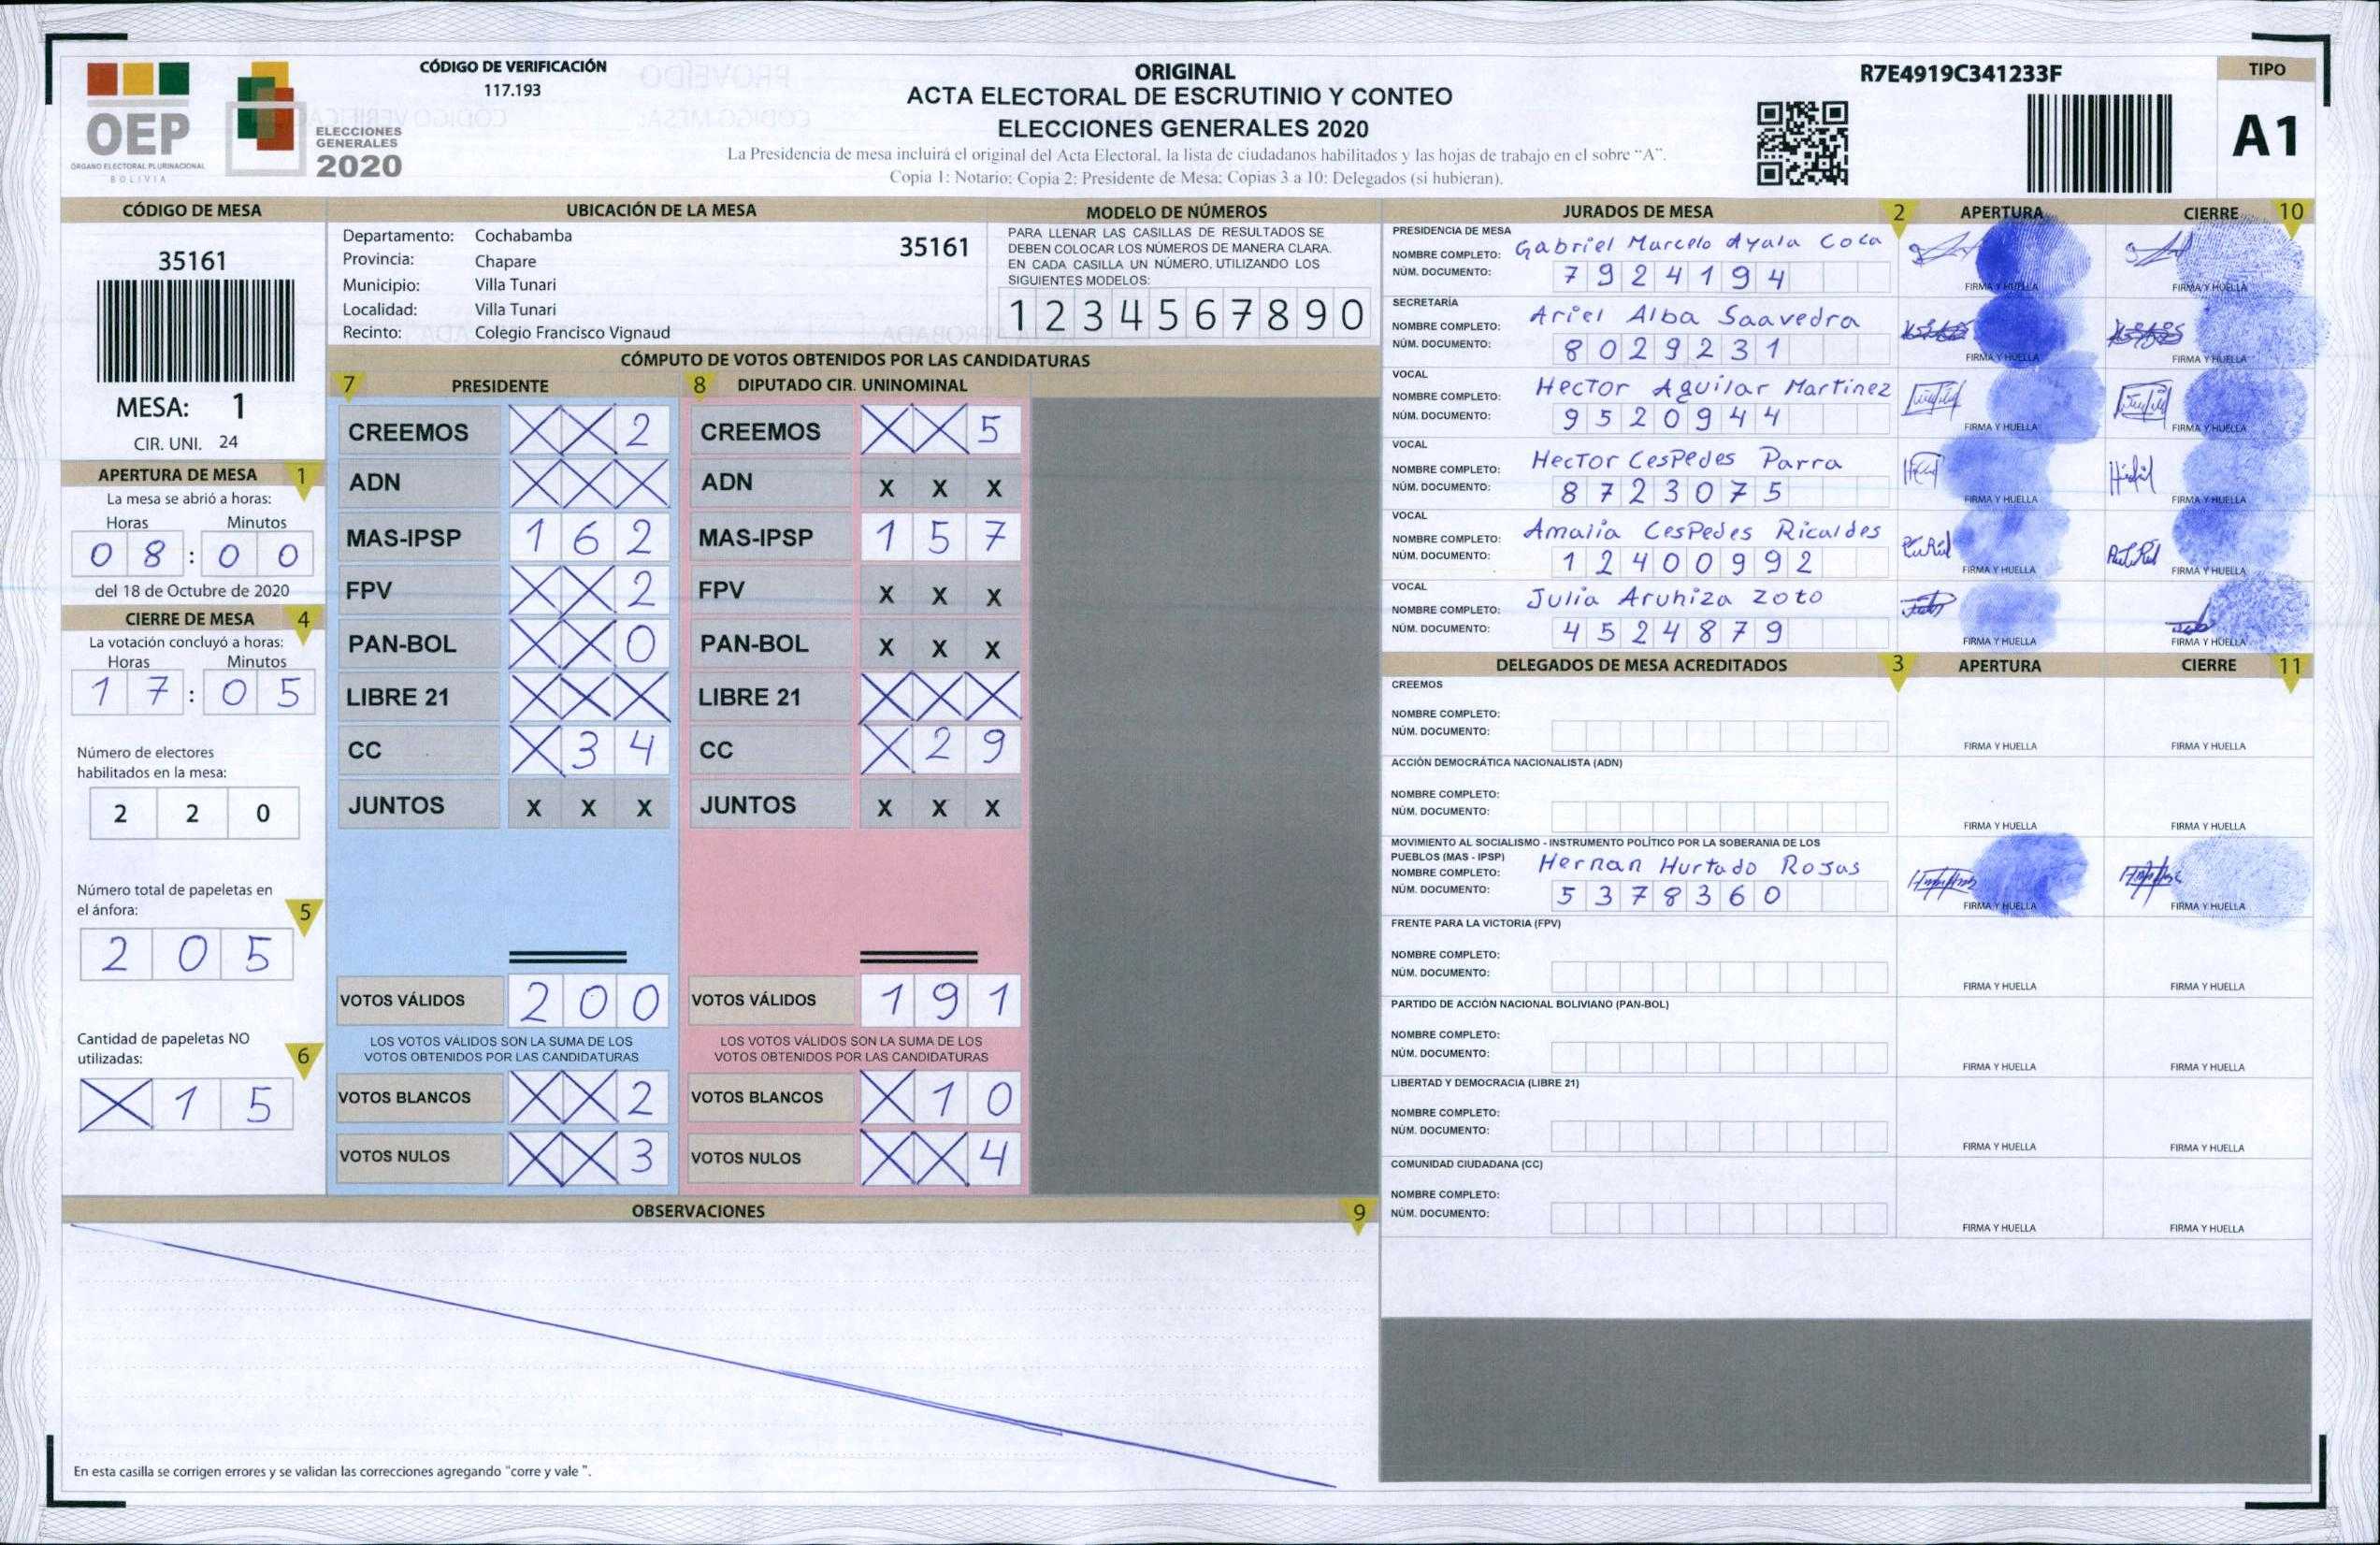 OEP
ÓRGANO ELECTORAL PLURINACIONAL
BOLIVIA
ELECCIONES
GENERALES
2020
CÓDIGO DE VERIFICACIÓN
117.193
ORIGINAL
ACTA ELECTORAL DE ESCRUTINIO Y CONTEO
ELECCIONES GENERALES 2020
La Presidencia de mesa incluirá el original del Acta Electoral, la lista de ciudadanos habilitados y las hojas de trabajo en el sobre "A".
Copia 1: Notario; Copia 2: Presidente de Mesa; Copias 3 a 10: Delegados (si hubieran).
R7E4919C341233F
TIPO
A1
CÓDIGO DE MESA
35161
MESA: 1
CIR. UNI. 24
APERTURA DE MESA 1
La mesa se abrió a horas:
Horas Minutos
0 8 : 0 0
del 18 de Octubre de 2020
CIERRE DE MESA 4
La votación concluyó a horas:
Horas Minutos
1 7 : 0 5
Número de electores
habilitados en la mesa:
2 2 0
Número total de papeletas en
el ánfora: 5
2 0 5
Cantidad de papeletas NO
utilizadas: 6
X 1 5
UBICACIÓN DE LA MESA
Departamento: Cochabamba 35161
Provincia: Chapare
Municipio: Villa Tunari
Localidad: Villa Tunari
Recinto: Colegio Francisco Vignaud
MODELO DE NÚMEROS
PARA LLENAR LAS CASILLAS DE RESULTADOS SE
DEBEN COLOCAR LOS NÚMEROS DE MANERA CLARA.
EN CADA CASILLA UN NÚMERO, UTILIZANDO LOS
SIGUIENTES MODELOS:
1 2 3 4 5 6 7 8 9 0
CÓMPUTO DE VOTOS OBTENIDOS POR LAS CANDIDATURAS
7 PRESIDENTE 8 DIPUTADO CIR. UNINOMINAL
CREEMOS X X 2 CREEMOS X X 5
ADN X X X ADN X X X
MAS-IPSP 1 6 2 MAS-IPSP 1 5 7
FPV X X 2 FPV X X X
PAN-BOL X X 0 PAN-BOL X X X
LIBRE 21 X X X LIBRE 21 X X X
CC X 3 4 CC X 2 9
JUNTOS X X X JUNTOS X X X
VOTOS VÁLIDOS 2 0 0 VOTOS VÁLIDOS 1 9 1
LOS VOTOS VÁLIDOS SON LA SUMA DE LOS LOS VOTOS VÁLIDOS SON LA SUMA DE LOS
VOTOS OBTENIDOS POR LAS CANDIDATURAS VOTOS OBTENIDOS POR LAS CANDIDATURAS
VOTOS BLANCOS X X 2 VOTOS BLANCOS X 1 0
VOTOS NULOS X X 3 VOTOS NULOS X X 4
OBSERVACIONES 9
En esta casilla se corrigen errores y se validan las correcciones agregando "corre y vale ".
JURADOS DE MESA 2 APERTURA CIERRE 10
PRESIDENCIA DE MESA
NOMBRE COMPLETO: Gabriel Marcelo Ayala Coca
NÚM. DOCUMENTO: 7 9 2 4 1 9 4
FIRMA Y HUELLA FIRMA Y HUELLA
SECRETARÍA
NOMBRE COMPLETO: Ariel Alba Saavedra
NÚM. DOCUMENTO: 8 0 2 9 2 3 1
FIRMA Y HUELLA FIRMA Y HUELLA
VOCAL
NOMBRE COMPLETO: Hector Aguilar Martinez
NÚM. DOCUMENTO: 9 5 2 0 9 4 4
FIRMA Y HUELLA FIRMA Y HUELLA
VOCAL
NOMBRE COMPLETO: Hector Cespedes Parra
NÚM. DOCUMENTO: 8 7 2 3 0 7 5
FIRMA Y HUELLA FIRMA Y HUELLA
VOCAL
NOMBRE COMPLETO: Amalia Cespedes Ricaldes
NÚM. DOCUMENTO: 1 2 4 0 0 9 9 2
FIRMA Y HUELLA FIRMA Y HUELLA
VOCAL
NOMBRE COMPLETO: Julia Aruhiza Zoto
NÚM. DOCUMENTO: 4 5 2 4 8 7 9
FIRMA Y HUELLA FIRMA Y HUELLA
DELEGADOS DE MESA ACREDITADOS 3 APERTURA CIERRE 11
CREEMOS
NOMBRE COMPLETO:
NÚM. DOCUMENTO:
FIRMA Y HUELLA FIRMA Y HUELLA
ACCIÓN DEMOCRÁTICA NACIONALISTA (ADN)
NOMBRE COMPLETO:
NÚM. DOCUMENTO:
FIRMA Y HUELLA FIRMA Y HUELLA
MOVIMIENTO AL SOCIALISMO - INSTRUMENTO POLÍTICO POR LA SOBERANIA DE LOS
PUEBLOS (MAS - IPSP)
NOMBRE COMPLETO: Hernan Hurtado Rosas
NÚM. DOCUMENTO: 5 3 7 8 3 6 0
FIRMA Y HUELLA FIRMA Y HUELLA
FRENTE PARA LA VICTORIA (FPV)
NOMBRE COMPLETO:
NÚM. DOCUMENTO:
FIRMA Y HUELLA FIRMA Y HUELLA
PARTIDO DE ACCIÓN NACIONAL BOLIVIANO (PAN-BOL)
NOMBRE COMPLETO:
NÚM. DOCUMENTO:
FIRMA Y HUELLA FIRMA Y HUELLA
LIBERTAD Y DEMOCRACIA (LIBRE 21)
NOMBRE COMPLETO:
NÚM. DOCUMENTO:
FIRMA Y HUELLA FIRMA Y HUELLA
COMUNIDAD CIUDADANA (CC)
NOMBRE COMPLETO:
NÚM. DOCUMENTO:
FIRMA Y HUELLA FIRMA Y HUELLA